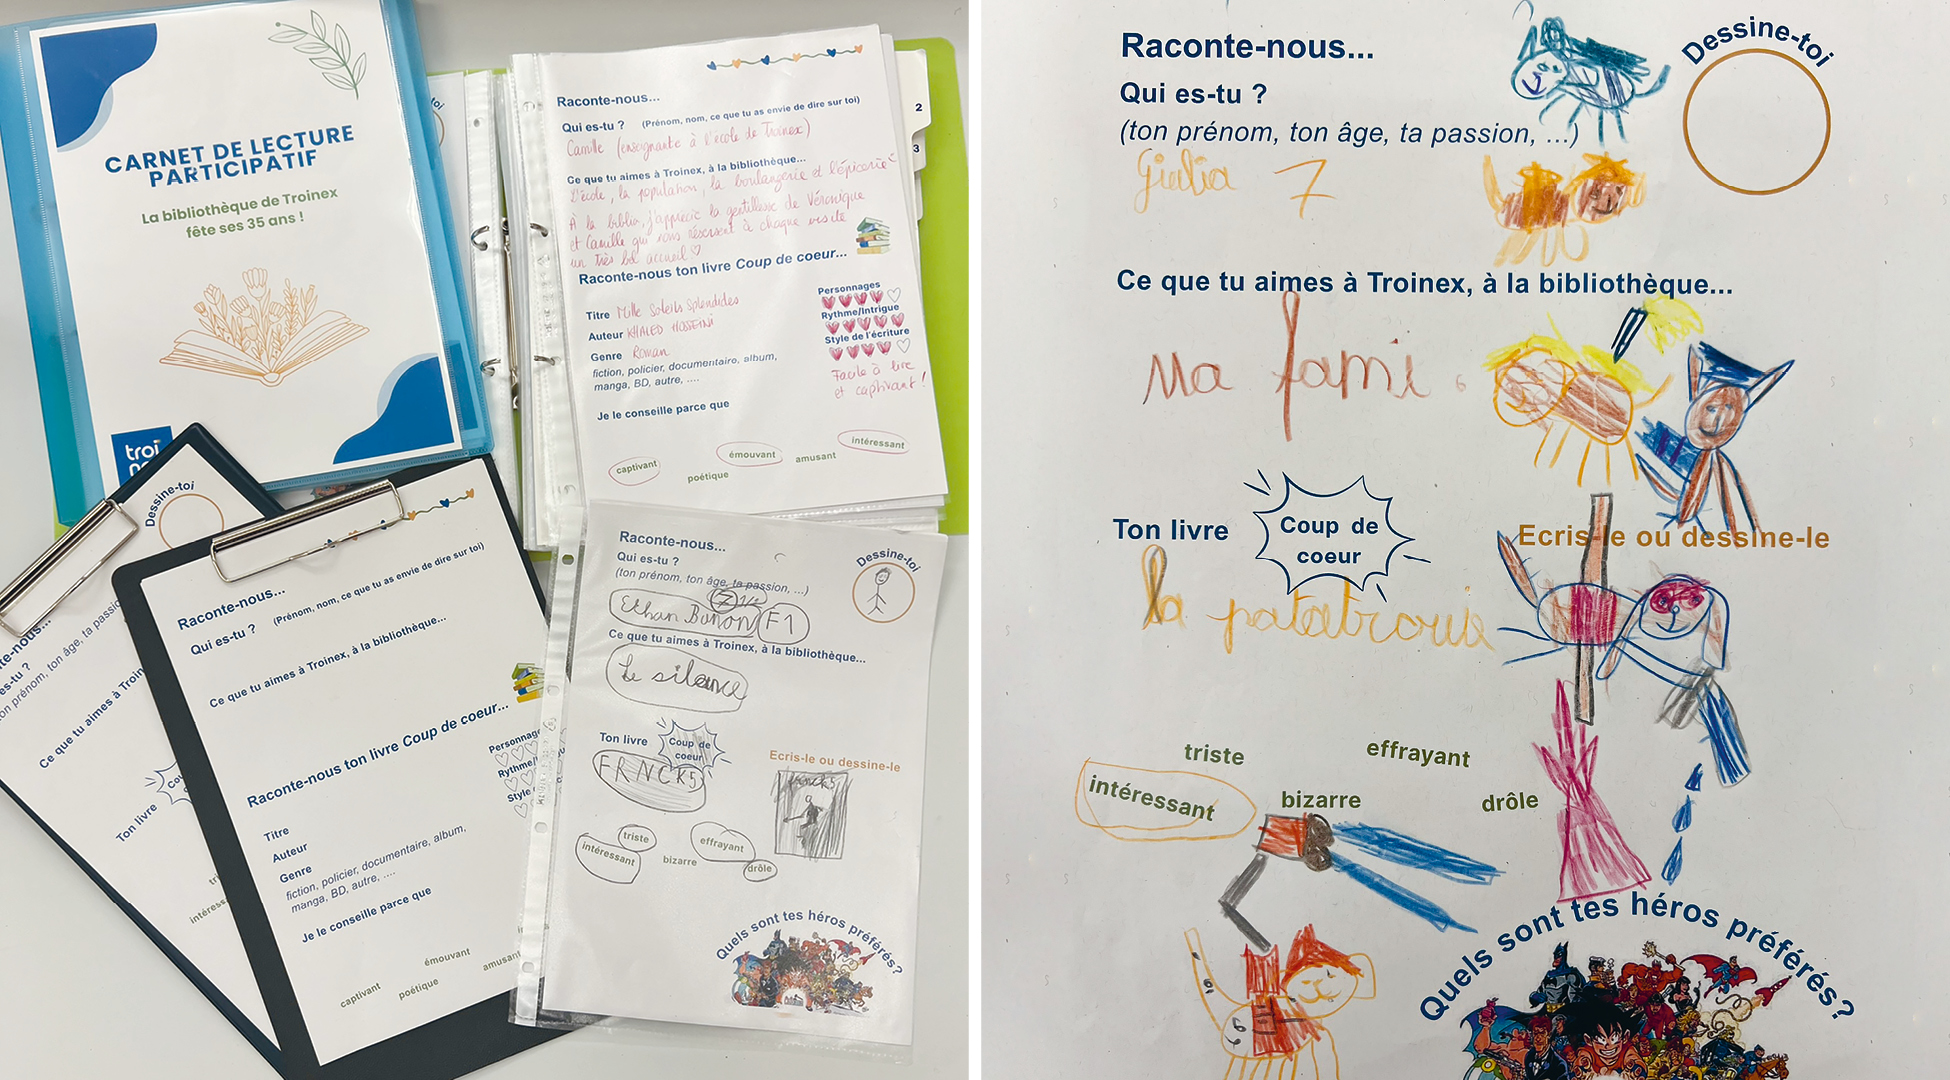 CARNET DE LECTURE
PARTICIPATIF
La bibliothèque de Troinex
fête ses 35 ans !
troi
Raconte-nous...
Qui es-tu ? (Prénom, nom, ce que tu as envie de dire sur toi)
Camille (enseignante à l'école de Troinex)
Ce que tu aimes à Troinex, à la bibliothèque...
L'école, la population, la boulangerie et l'épicerie
À la biblio, j'apprécie la gentillesse de Véronique
et Camille qui nous réservent à chaque visite
un très bel accueil ♡
Raconte-nous ton livre Coup de coeur...
Titre Mille Soleils Splendides
Auteur KHALED HOSSEINI
Genre Roman
fiction, policier, documentaire, album,
manga, BD, autre, ....
Je le conseille parce que
Personnages
Rythme/Intrigue
Style de l'écriture
Facile à lire
et captivant !
captivant
émouvant
intéressant
poétique
amusant
2
3
Dessine-toi
Raconte-nous...
Qui es-tu ? (Prénom, nom, ce que tu as envie de dire sur toi)
Ce que tu aimes à Troinex, à la bibliothèque...
Raconte-nous ton livre Coup de coeur...
Titre
Auteur
Genre
fiction, policier, documentaire, album,
manga, BD, autre, ....
Je le conseille parce que
captivant
émouvant
poétique
Raconte-nous...
Qui es-tu ?
(ton prénom, ton âge, ta passion, ...)
Dessine-toi
Ethan Bunon F1
Ce que tu aimes à Troinex, à la bibliothèque...
Le silence
Ton livre
Coup de
coeur
FRNCK5
Ecris-le ou dessine-le
intéressant
triste
bizarre
effrayant
drôle
Quels sont tes héros préférés?
Raconte-nous...
Qui es-tu ?
(ton prénom, ton âge, ta passion, ...)
Dessine-toi
Giulia 7
Ce que tu aimes à Troinex, à la bibliothèque...
Ma fami
Ton livre
Coup de
coeur
Ecris-le ou dessine-le
la patatrouie
triste
effrayant
intéressant
bizarre
drôle
Quels sont tes héros préférés?